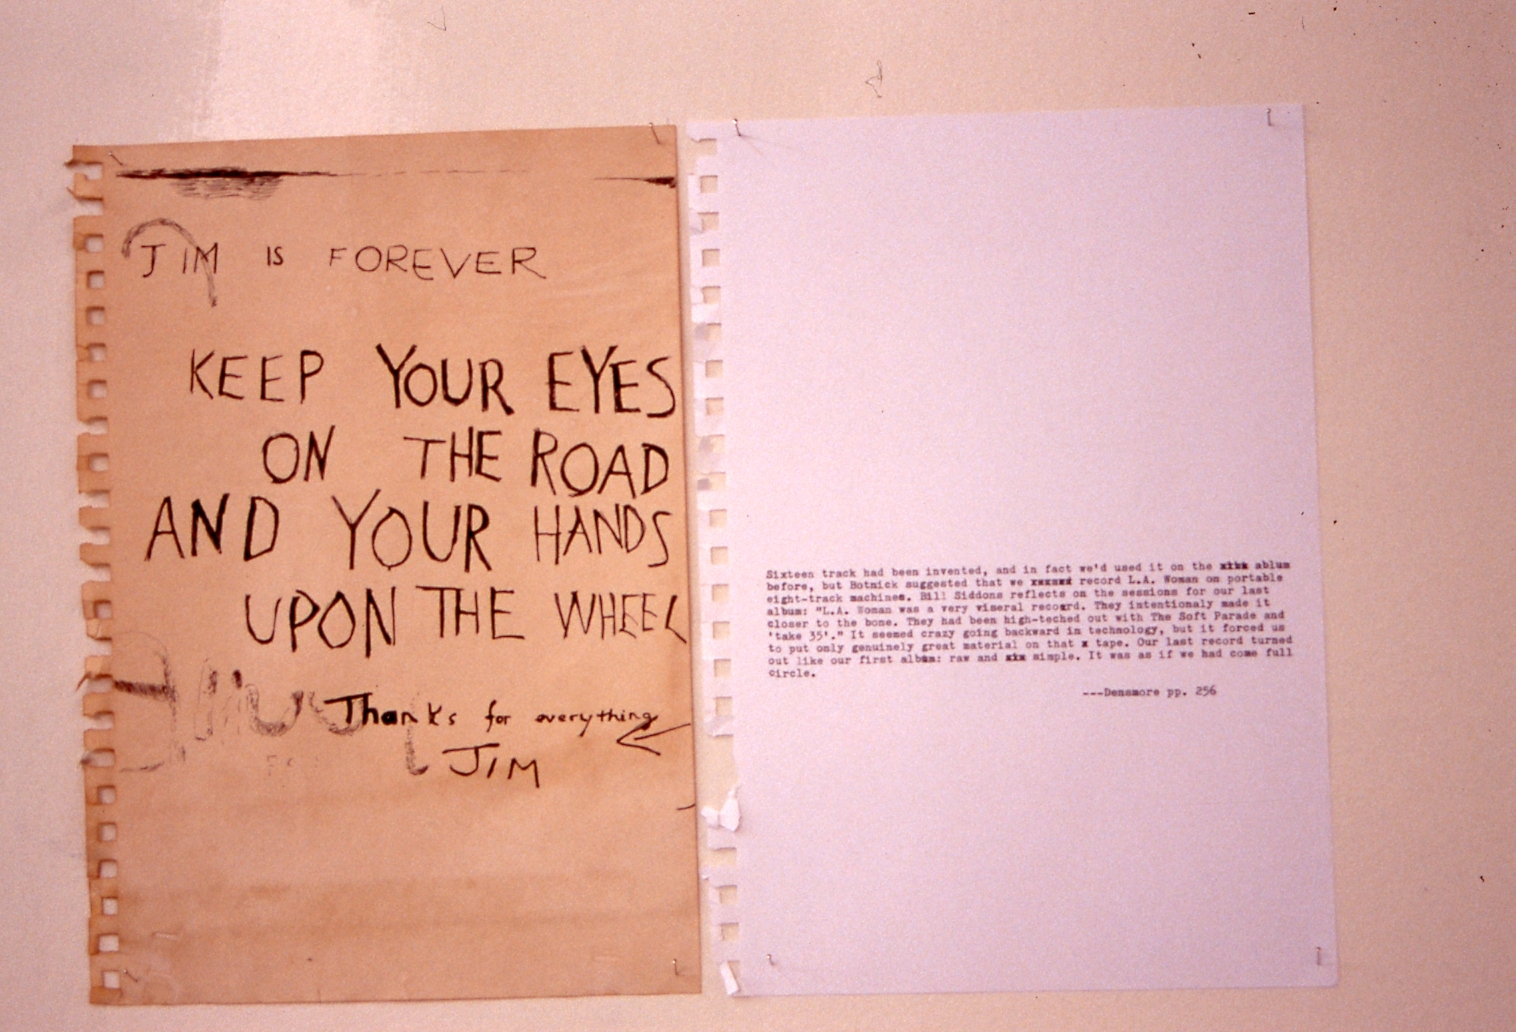 JIM IS FOREVER
KEEP YOUR EYES
ON THE ROAD
AND YOUR HANDS
UPON THE WHEEL
Thanks for everything
JIM
Sixteen track had been invented, and in fact we'd used it on the ablum
before, but Botnick suggested that we record L.A. Woman on portable
eight-track machines. Bill Siddons reflects on the sessions for our last
album: "L.A. Woman was a very visceral record. They intentionaly made it
closer to the bone. They had been high-teched out with The Soft Parade and
'take 35'." It seemed crazy going backward in technology, but it forced us
to put only genuinely great material on that x tape. Our last record turned
out like our first album: raw and simple. It was as if we had come full
circle.
---Densmore pp. 256